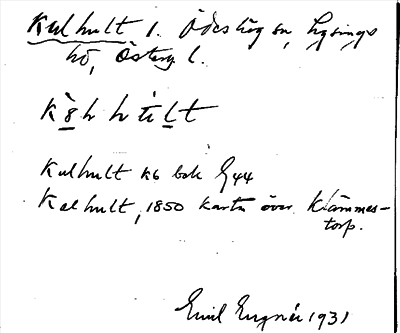 Kulhult l. Ödeshög sn, Lysings
hd, Österg l.
Kulhult kb bok 44
Kalhult, 1850 karta över Klämmes-
torp.
Emil Engnér 1931